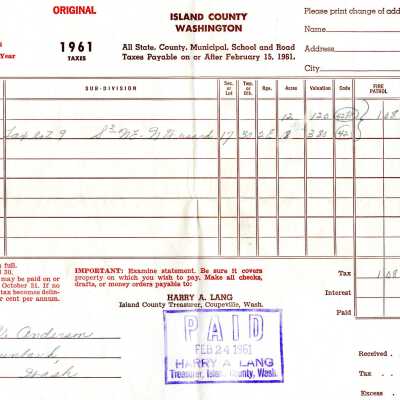 ORIGINAL
ISLAND COUNTY
WASHINGTON
Please print change of add
Name
1961
TAXES
Year
All State, County, Municipal, School and Road
Taxes Payable on or After February 15, 1961.
Address
City
SUB-DIVISION
Sec. or Lot
Twp. or Blk.
Rge.
Acres
Valuation
Code
FIRE PATROL
12 120 1.08
Tax Lot 9 17 30 2E 8 380
full.
30,
may be paid on or
October 31. If no
tax becomes delin-
per cent per annum.
IMPORTANT: Examine statement. Be sure it covers
property on which you wish to pay. Make all checks,
drafts, or money orders payable to:
HARRY A. LANG
Island County Treasurer, Coupeville, Wash.
Tax 1.08
Interest
Paid
Anderson
Wash
PAID
FEB 24 1961
HARRY A. LANG
Treasurer, Island County, Wash.
Received
Tax
Excess